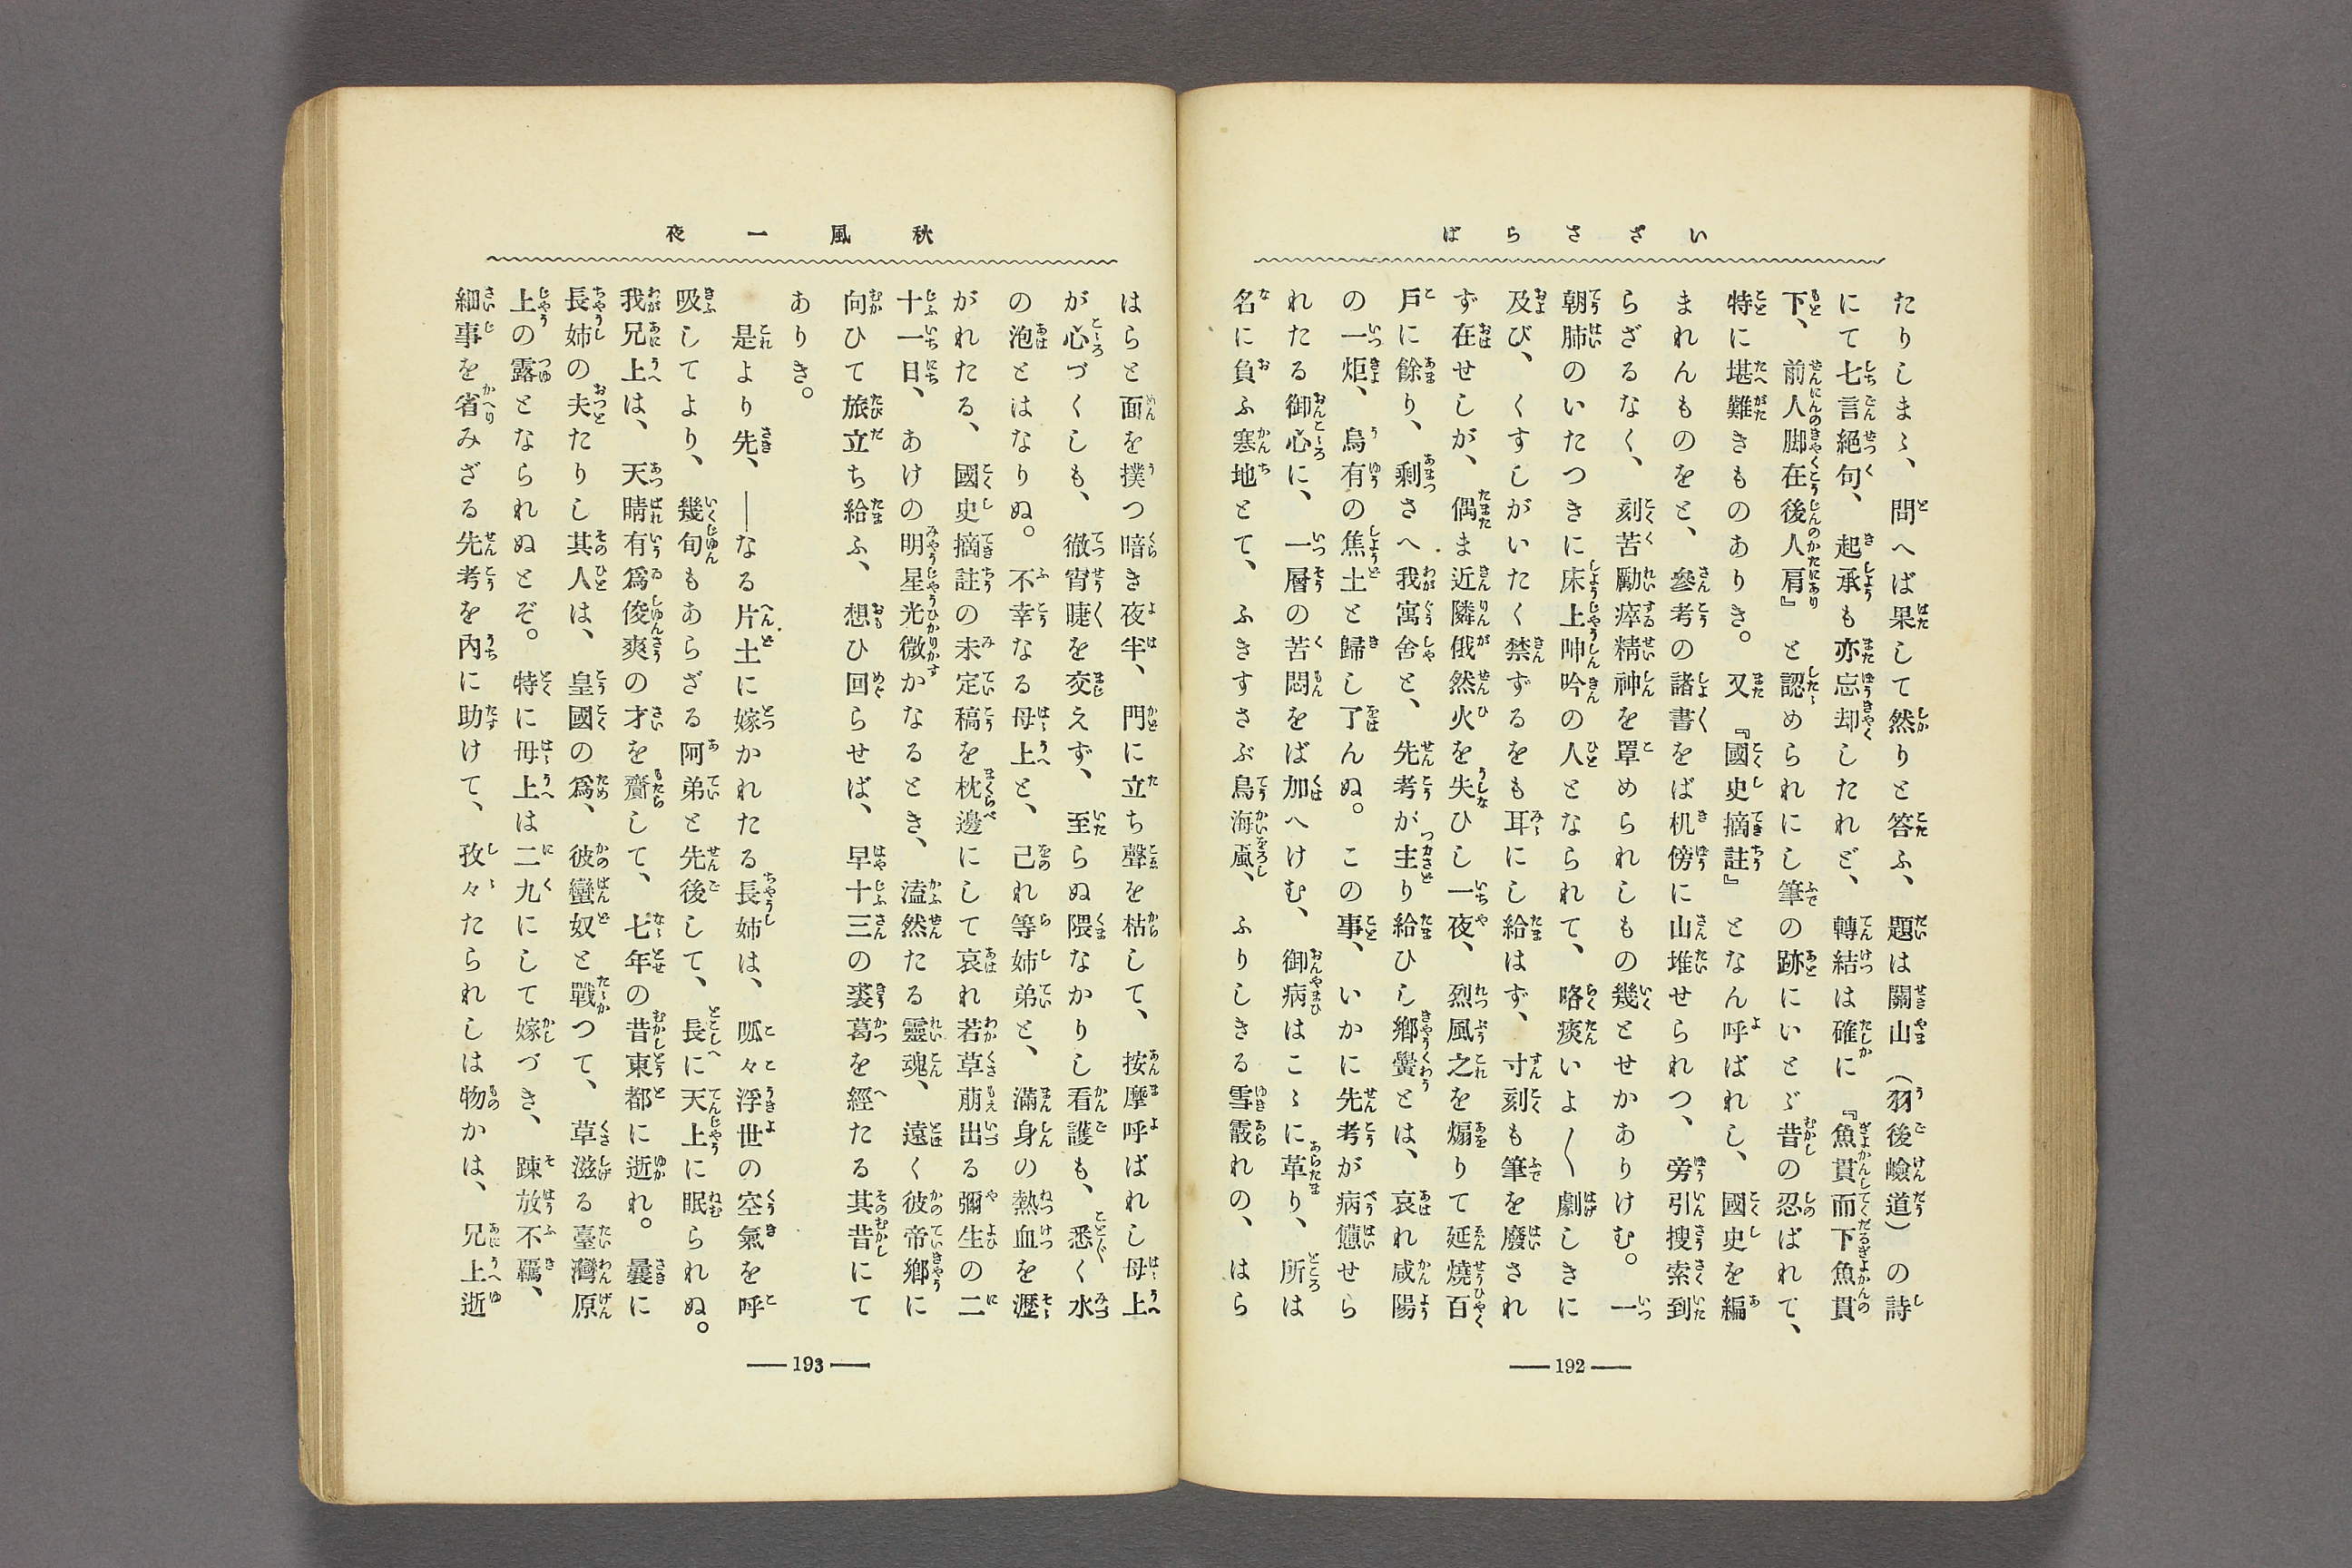 いざさらば
たりしまゝ、問へば果して然りと答ふ、題は關山（羽後嶮道）の詩
にて七言絕句、起承も亦忘却したれど、轉結は確に『魚貫而下魚貫
下、前人脚在後人肩』と認められにし筆の跡にいとゞ昔の忍ばれて、
特に堪難きものありき。又『國史摘註』となん呼ばれし、國史を編
まれんものをと、參考の諸書をば机傍に山堆せられつ、旁引搜索到
らざるなく、刻苦勵瘁精神を罩められしもの幾とせかありけむ。一
朝肺のいたつきに床上呻吟の人となられて、咯痰いよ〱劇しきに
及び、くすしがいたく禁ずるをも耳にし給はず、寸刻も筆を廢され
ず在せしが、偶ま近隣俄然火を失ひし一夜、烈風之を煽りて延燒百
戶に餘り、剩さへ我寓舍と、先考が主り給ひし鄕黌とは、哀れ咸陽
の一炬、烏有の焦土と歸し了んぬ。この事、いかに先考が病憊せら
れたる御心に、一層の苦悶をば加へけむ、御病はこゝに革り、所は
名に負ふ寒地とて、ふきすさぶ鳥海颪、ふりしきる雪霰れの、はら
―192―
秋風一夜
はらと面を撲つ暗き夜半、門に立ち聲を枯して、按摩呼ばれし母上
が心づくしも、徹宵睫を交えず、至らぬ隈なかりし看護も、悉く水
の泡とはなりぬ。不幸なる母上と、己れ等姉弟と、滿身の熱血を瀝
がれたる、國史摘註の未定稿を枕邊にして哀れ若草萠出る彌生の二
十一日、あけの明星光微かなるとき、溘然たる靈魂、遠く彼帝鄕に
向ひて旅立ち給ふ、想ひ回らせば、早十三の裘葛を經たる其昔にて
ありき。
是より先、―なる片土に嫁かれたる長姉は、呱々浮世の空氣を呼
吸してより、幾旬もあらざる阿弟と先後して、長に天上に眠られぬ。
我兄上は、天晴有爲俊爽の才を齎して、七年の昔東都に逝れ。曩に
長姉の夫たりし其人は、皇國の爲、彼蠻奴と戰つて、草滋る臺灣原
上の露となられぬとぞ。特に母上は二九にして嫁づき、踈放不羈、
細事を省みざる先考を內に助けて、孜々たられしは物かは、兄上逝
―193―